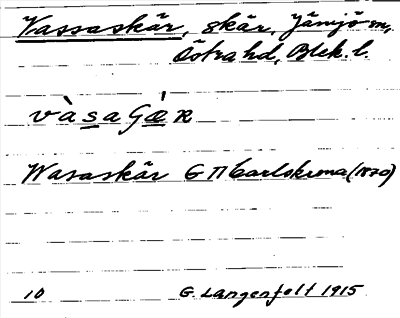 Vassaskär, skär, Jämjö sn,
Östra hd, Blek. l.
vàsaGǽR
Wasaskär G Π Carlskrona (1870)
10 G. Langenfelt 1915